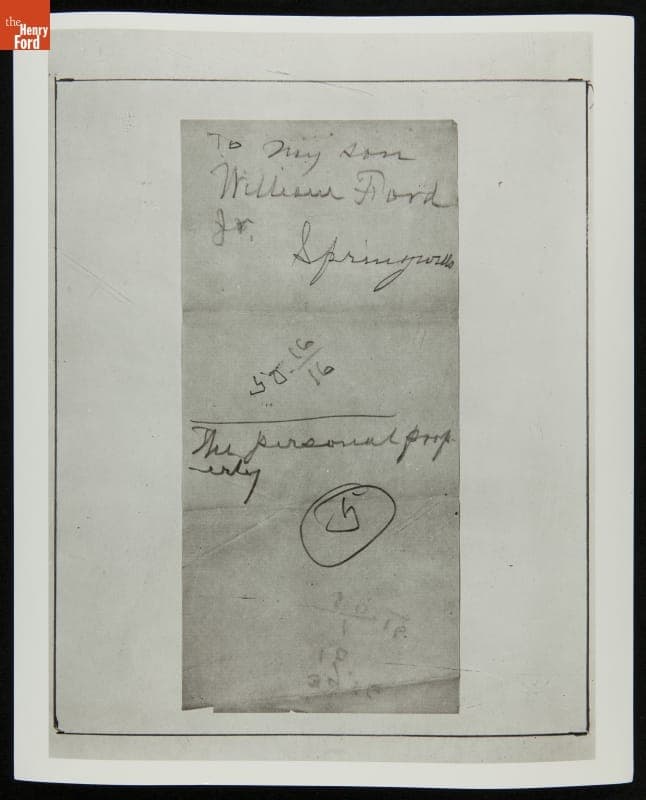 the
Henry
Ford
To my son
William Ford
Jr.
Springwells
50 16/16
The personal prop-
erty
5